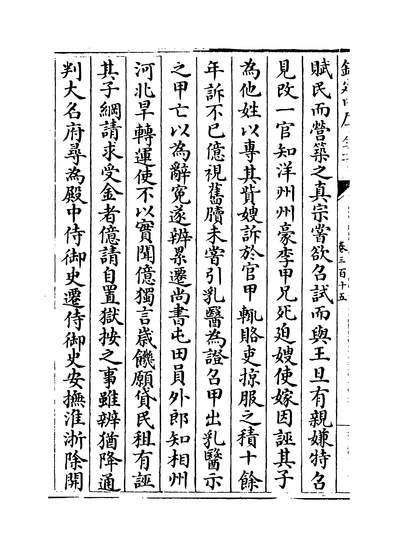 欽定四庫全書
卷三百十五
賦民而營築之真宗嘗欲召試而與王旦有親嫌特召
見改一官知洋州州豪李甲兄死迫嫂使嫁因誣其子
為他姓以專其貲嫂訴於官甲輒賂吏掠服之積十餘
年訴不已億視舊牘未嘗引乳醫為證召甲出乳醫示
之甲亡以為辭寃遂辨累遷尚書屯田員外郎知相州
河北旱轉運使不以實聞億獨言歲饑願貸民租有誣
其子綱請求受金者億請自置獄按之事雖辨猶降通
判大名府尋為殿中侍御史遷侍御史安撫淮浙除開